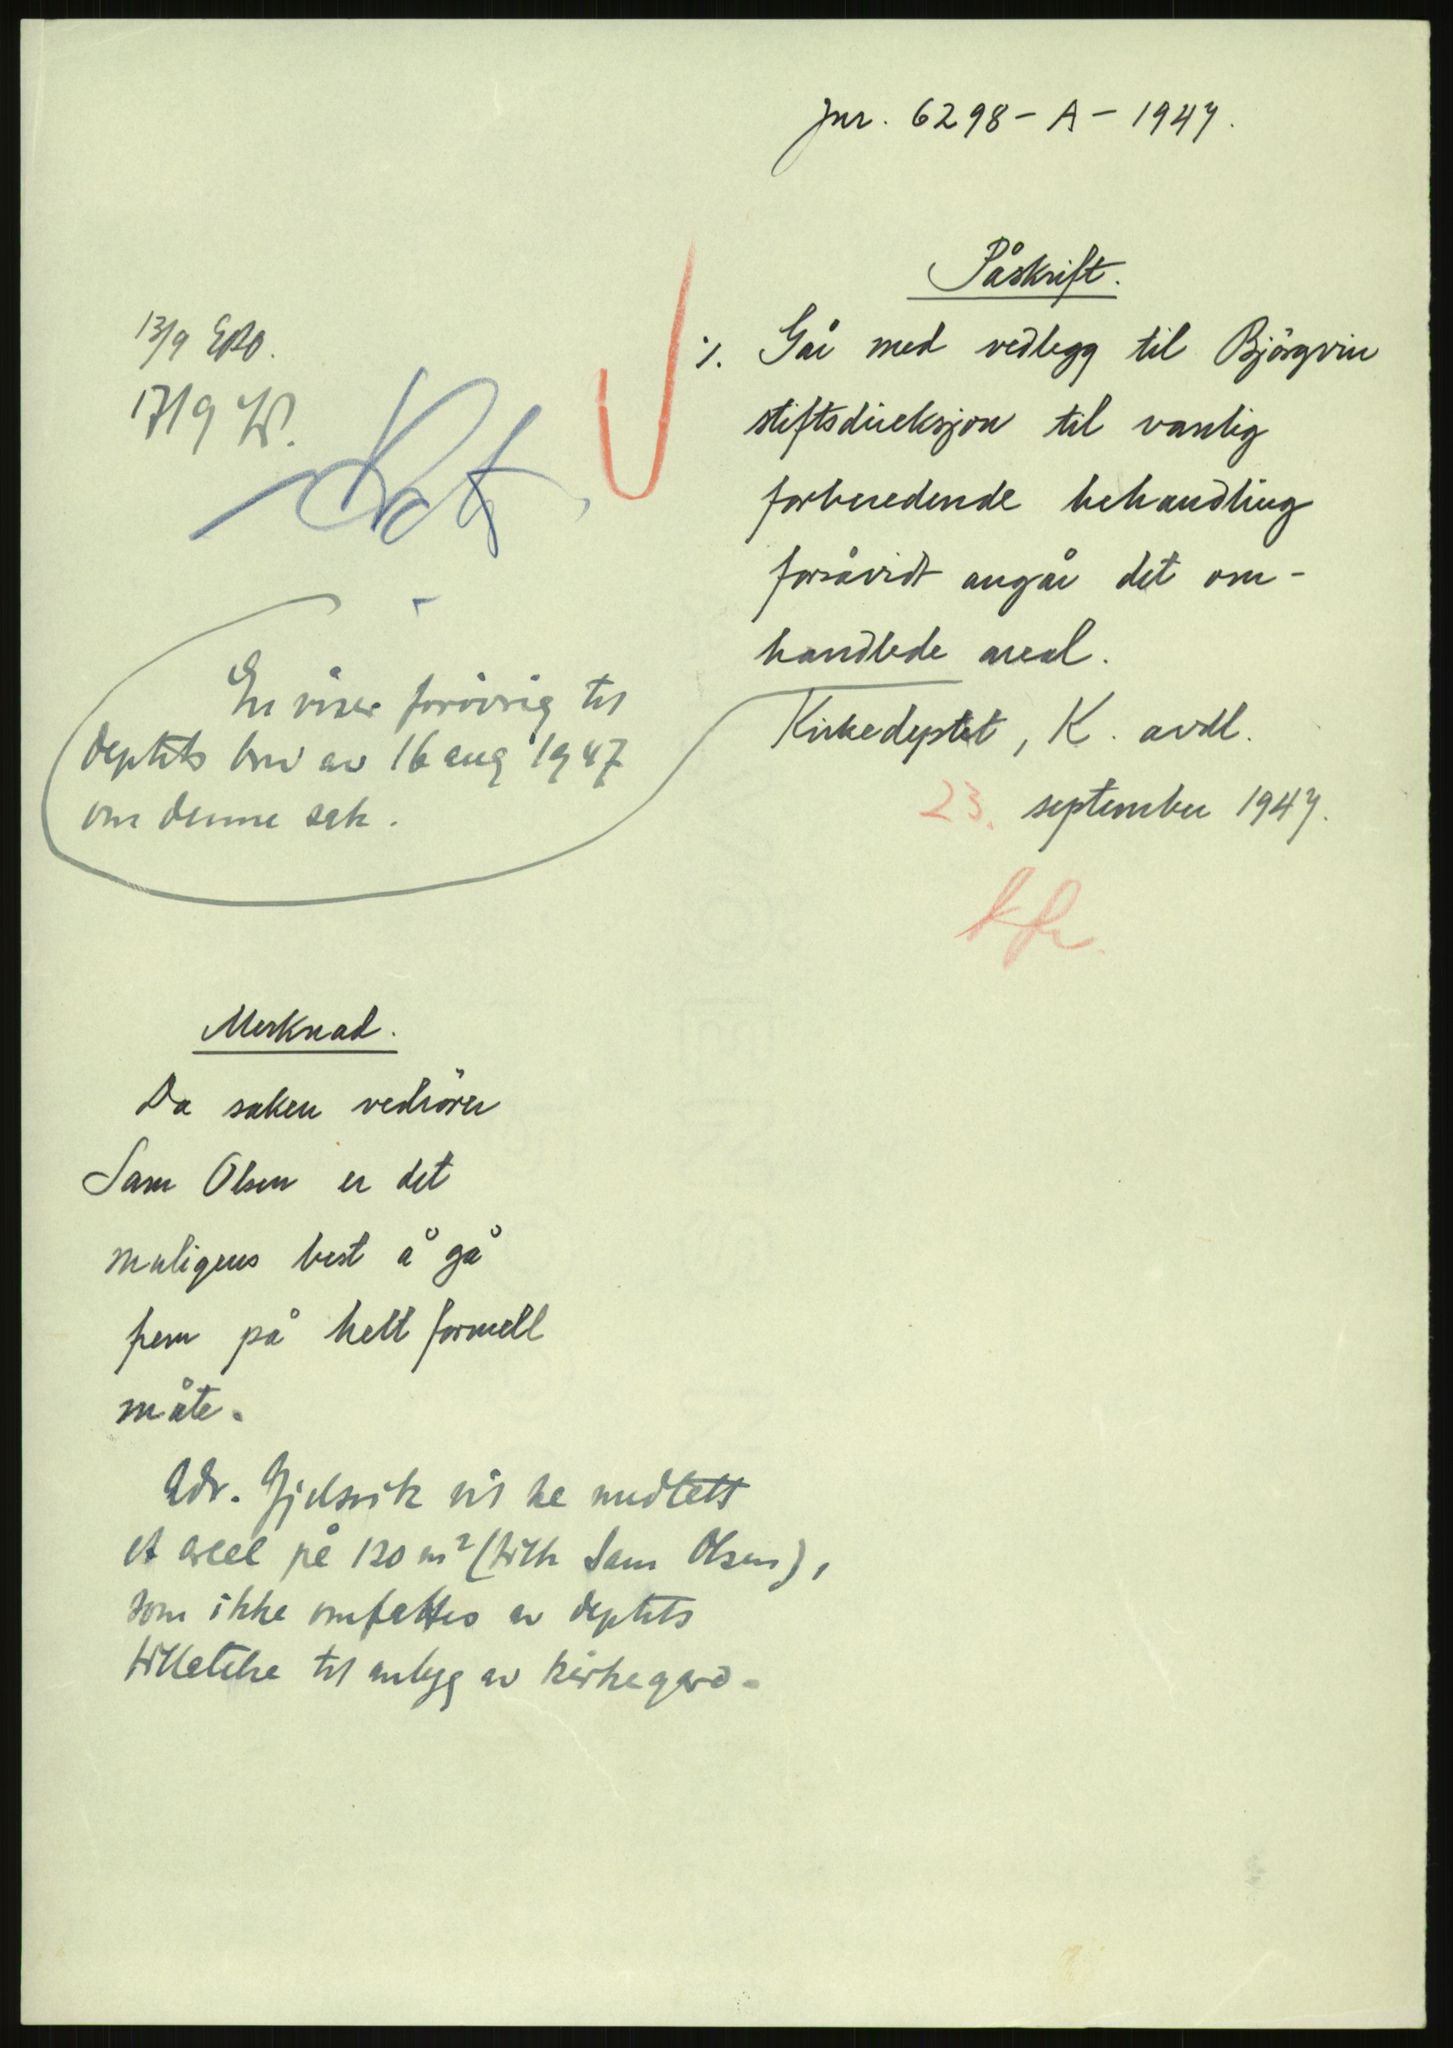 Jnr. 6298-A-1947.
Påskrift.
13/9
17/9
%. Går med vedlegg til Björgvin
stiftsdireksjon til vanlig
forberedende behandling
forsåvidt angår det om-
handlede areal.
En viser forövrig til
deptets brev av 16 aug 1947
om denne sak.
Kirkedeptet, K. avdl.
23. september 1947.
Merknad.
Da saken vedrörer
Sam Olsen er det
muligens best å gå
frem på helt formell
måte.
Adr. Gjelsvik vil ha
et areal på 120 m² (till Sam Olsen),
som ikke omfattes av deptets
tillatelse til anlegg av kirkegård.